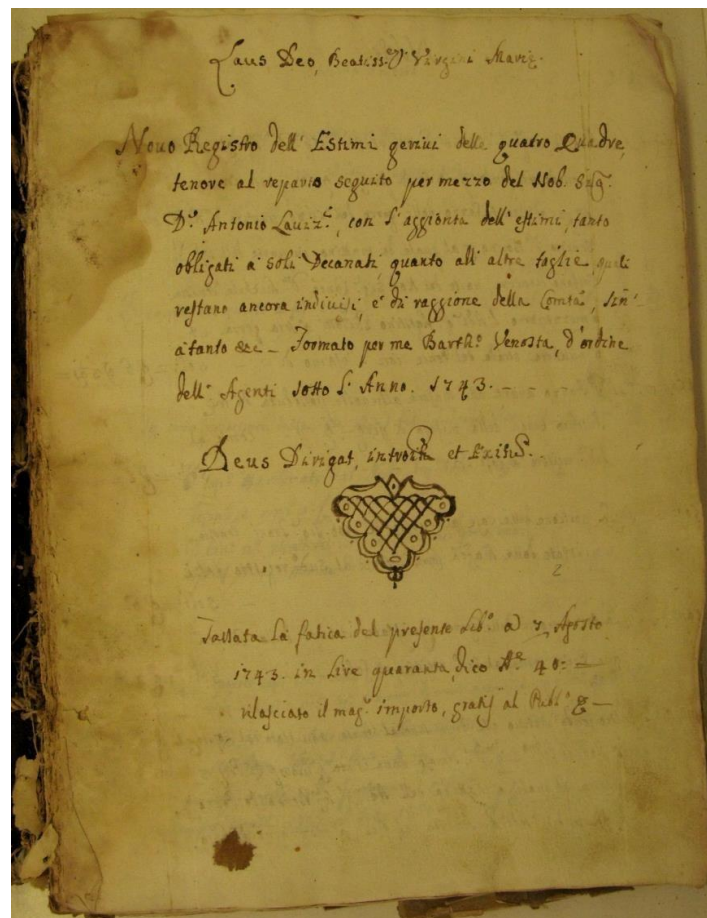 Laus Deo, Beatiss.ę Virgini Marię.
Novo Registro dell' Estimi gerivi delle quatro Quadre,
tenore al reparto seguito per mezzo del Nob. Sig.
D.r Antonio Lavizz.i, con l'aggionta dell' estimi, tanto
obligati a soli Decanati, quanto all' altre taglie, quali
restano ancora indivisi, e di raggione della Comtà, sin'
a tanto &c – Formato per me Barth.o Venosta, d'ordine
dell' Agenti sotto l' Anno. 1743. – – –
Deus Dirigat, et Exitus.
2
Tassata La fatica del presente Lib.o a 7 Agosto
1743. in Lire quaranta, dico 40: –
rilasciato il mag.r importo, gratis al Publ.o & –